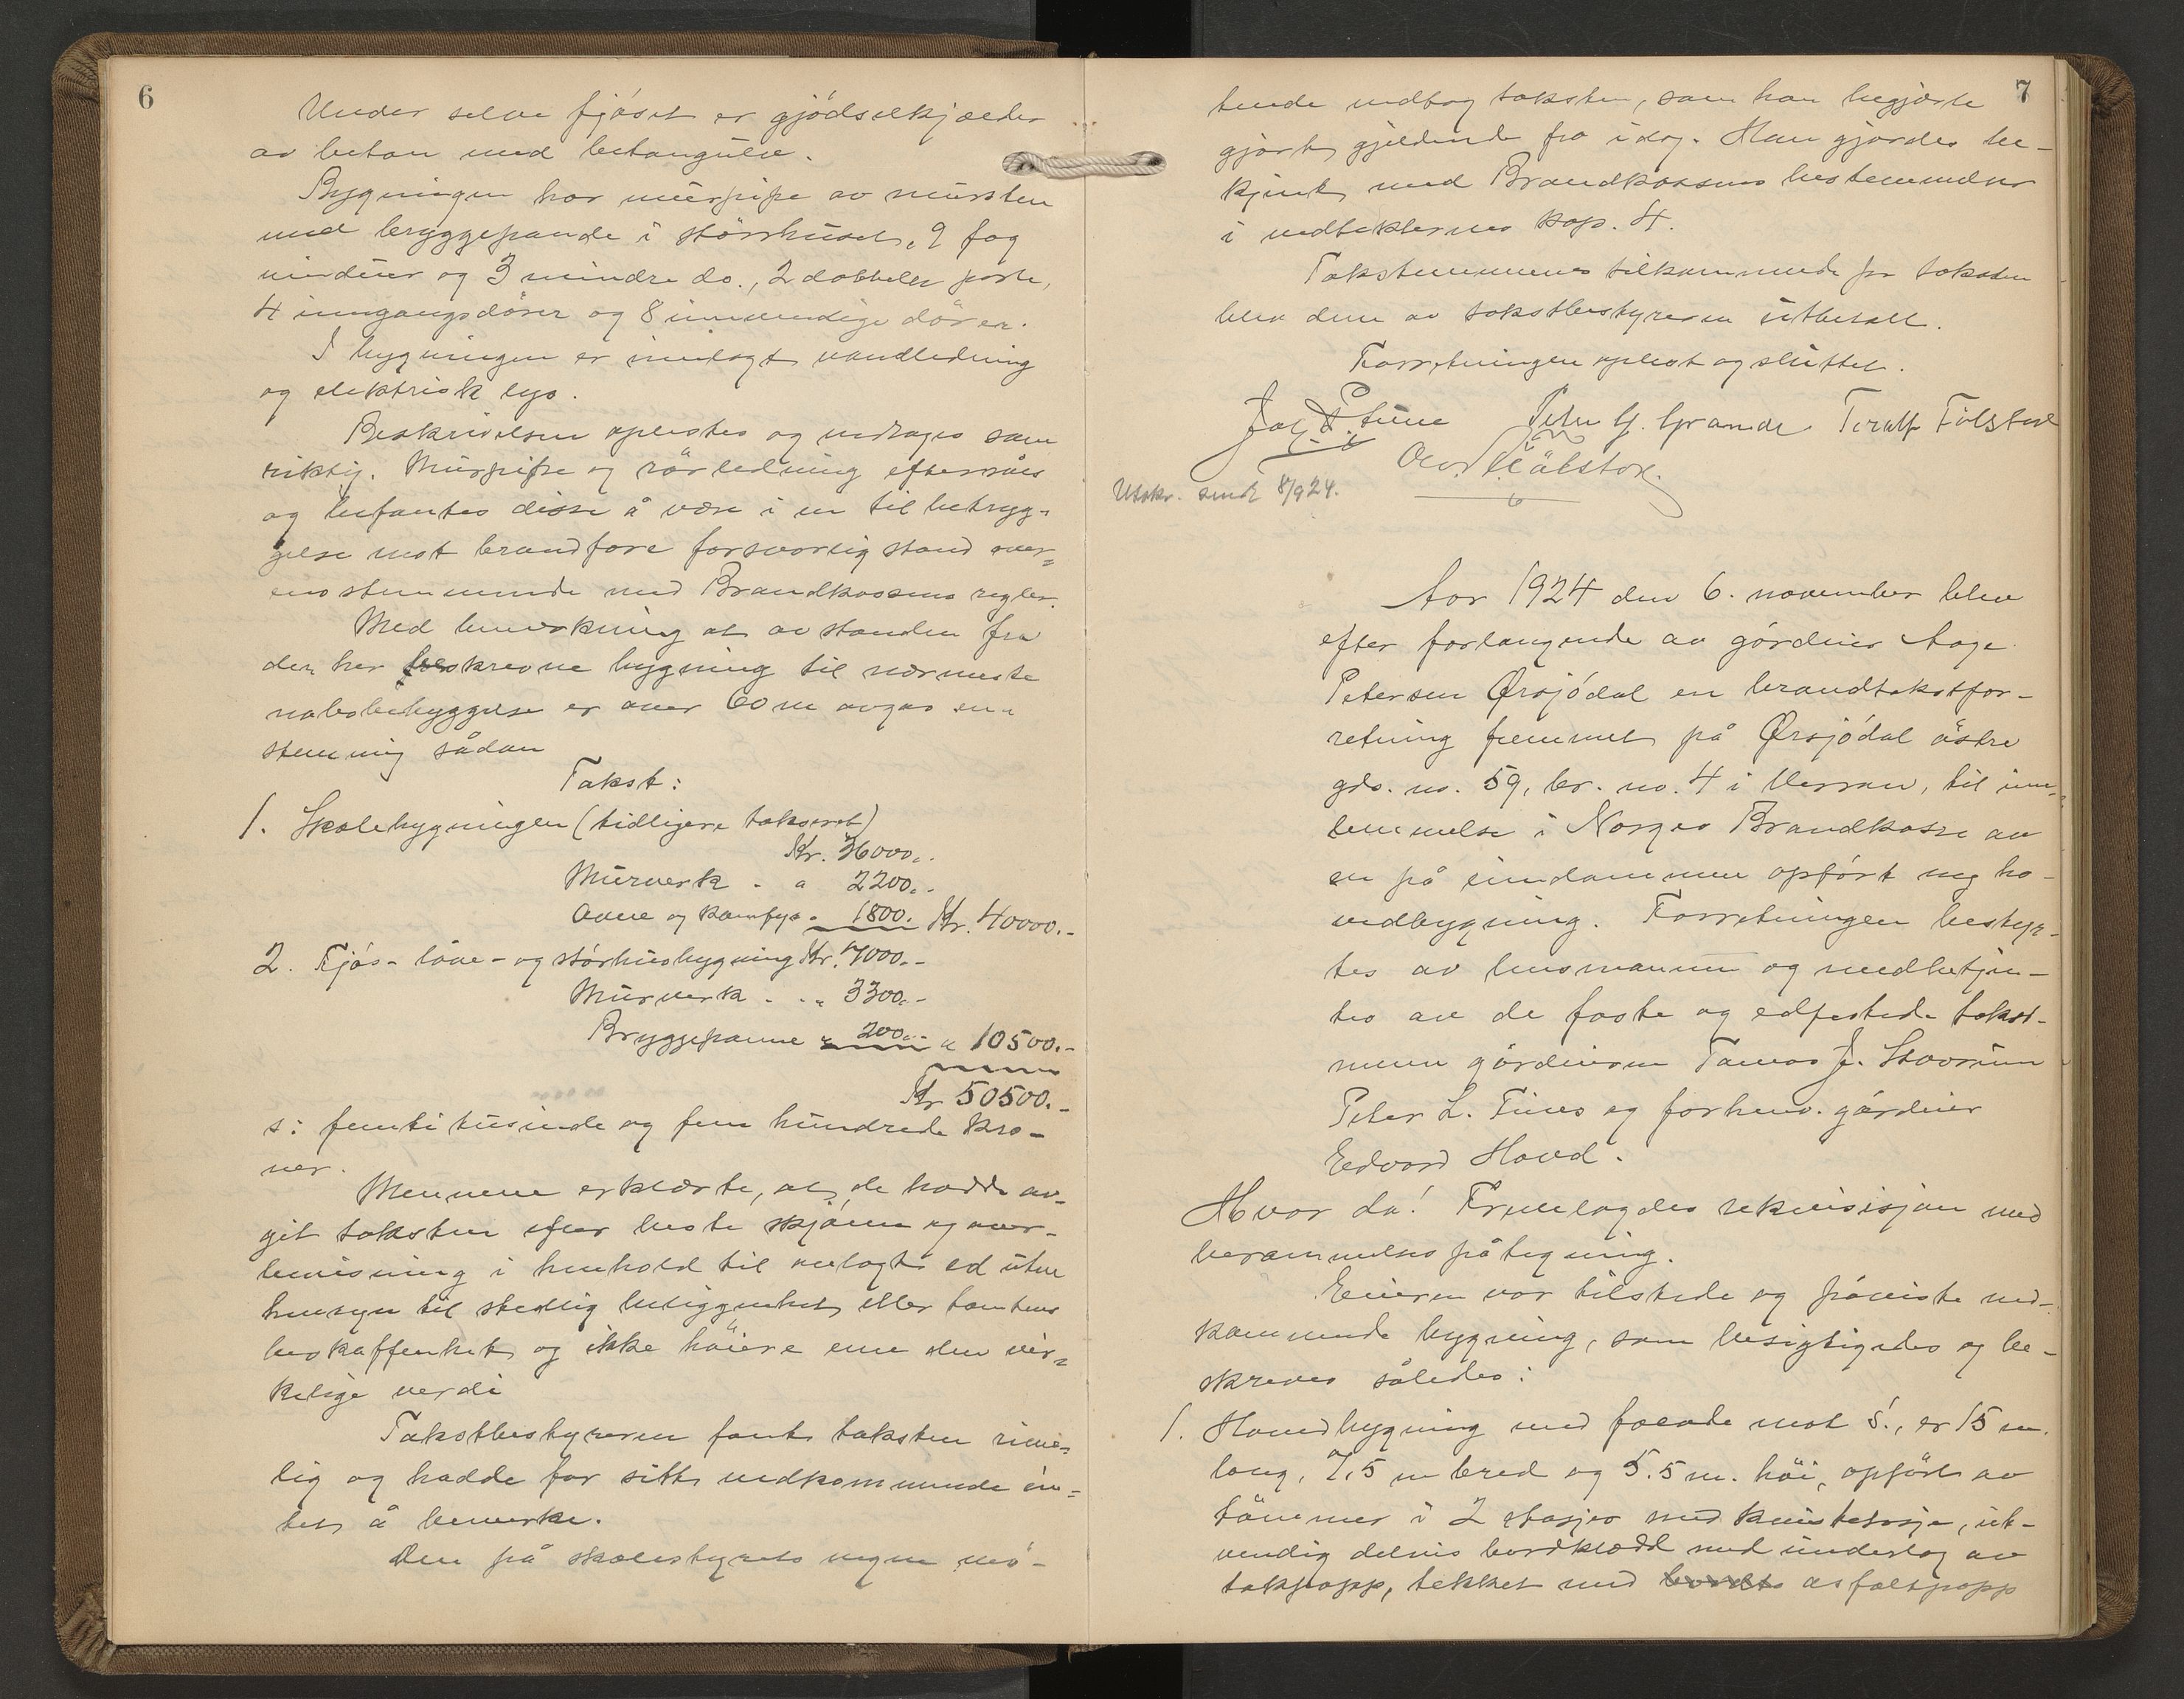 6
Under selve fjøset er gjødselkjælder
av betan med betangulv.
Bygningen har murpipe av mursten
med bryggepande i størrhuset, 9 fag
vinduer og 3 mindre do., 2 dobbelte porte,
4 inngangsdører og 8 innvendige dører.
I bygningen er innlagt vandledning
og elektrisk lys.
Beskrivelsen oplestes og vedtages som
riktig. Murpipe og rørledning eftersåes
og befantes disse å være i en til betryg-
gelse mot brandfare forsvarlig stand over=
ensstemmende med Brandkassens regler.
Med bemerkning at avstanden fra
den her beskrevne bygning til nærmeste
nabobebyggelse er over 60 m avgas en-
stemmig sådan
Takst:
1. Skolebygningen (tidligere taksert)
Kr. 36000,-
Murverk - " 2200,-
Ovne og komfyr " 1800. Kr. 40000.-
2. Fjøs- låve- og størhusbygning Kr. 7000.-
Murverk - - " 3300.-
Bryggepanne " 200.- " 10500.-
Kr 50500.-
s: femti tusinde og fem hundrede kro-
ner.
Mennene erklærte, at de hadde av-
git taksten efter beste skjønn og over-
bevisning i henhold til avlagt ed uten
hensyn til stedlig beliggenhet eller tomtens
beskaffenhet og ikke høiere enn den vir=
kelige verdi
Takstbestyreren fant taksten rime-
lig og hadde for sitt vedkommende in=
tet å bemerke.
Den på skolestyrets vegne mø-
7
tende vedtog taksten, som han begjærte
gjort gjeldende fra idag. Han gjordes be-
kjent med Brandkassens bestemmelser
i vedtekternes kap. 4.
Takstmennenes tilkommende for taksten
blev dem av takstbestyreren utbetalt.
Forretningen oplest og sluttet.
Peter G. Grande Toralf Følstad
Utskr. sendt 8/9 24.
Aar 1924 den 6. november blev
efter forlangende av gårdeier Aage
Petersen Ørsjødal en brandtakstfor-
retning fremmet på Ørsjødal østre
gds. no. 59, br. no. 4 i Verran, til inn-
lemmelse i Norges Brandkasse av
en på eiendommen opført ny ho-
vedbygning. Forretningen bestyr-
tes av lensmannen og medbetjen-
tes av de faste og edfestede takst-
menn gårdeierne Tomas J. Stavrum
Peter L. Tines og forhenv. gårdeier
Edvard Hovd.
Hvor da! Fremlagdes rekvisisjon med
berammelsespåtegning.
Eieren var tilstede og påviste ved-
kommende bygning, som besigtigedes og be-
skreves således:
1. Hovedbygning med facade mot S., er 15 m.
lang, 7,5 m bred og 5.5 m. høi, opført av
tømmer i 2 etasjer med kvistetasje, ut-
vendig delvis bordklædd med underlag av
takpapp, tekket med asfaltpapp